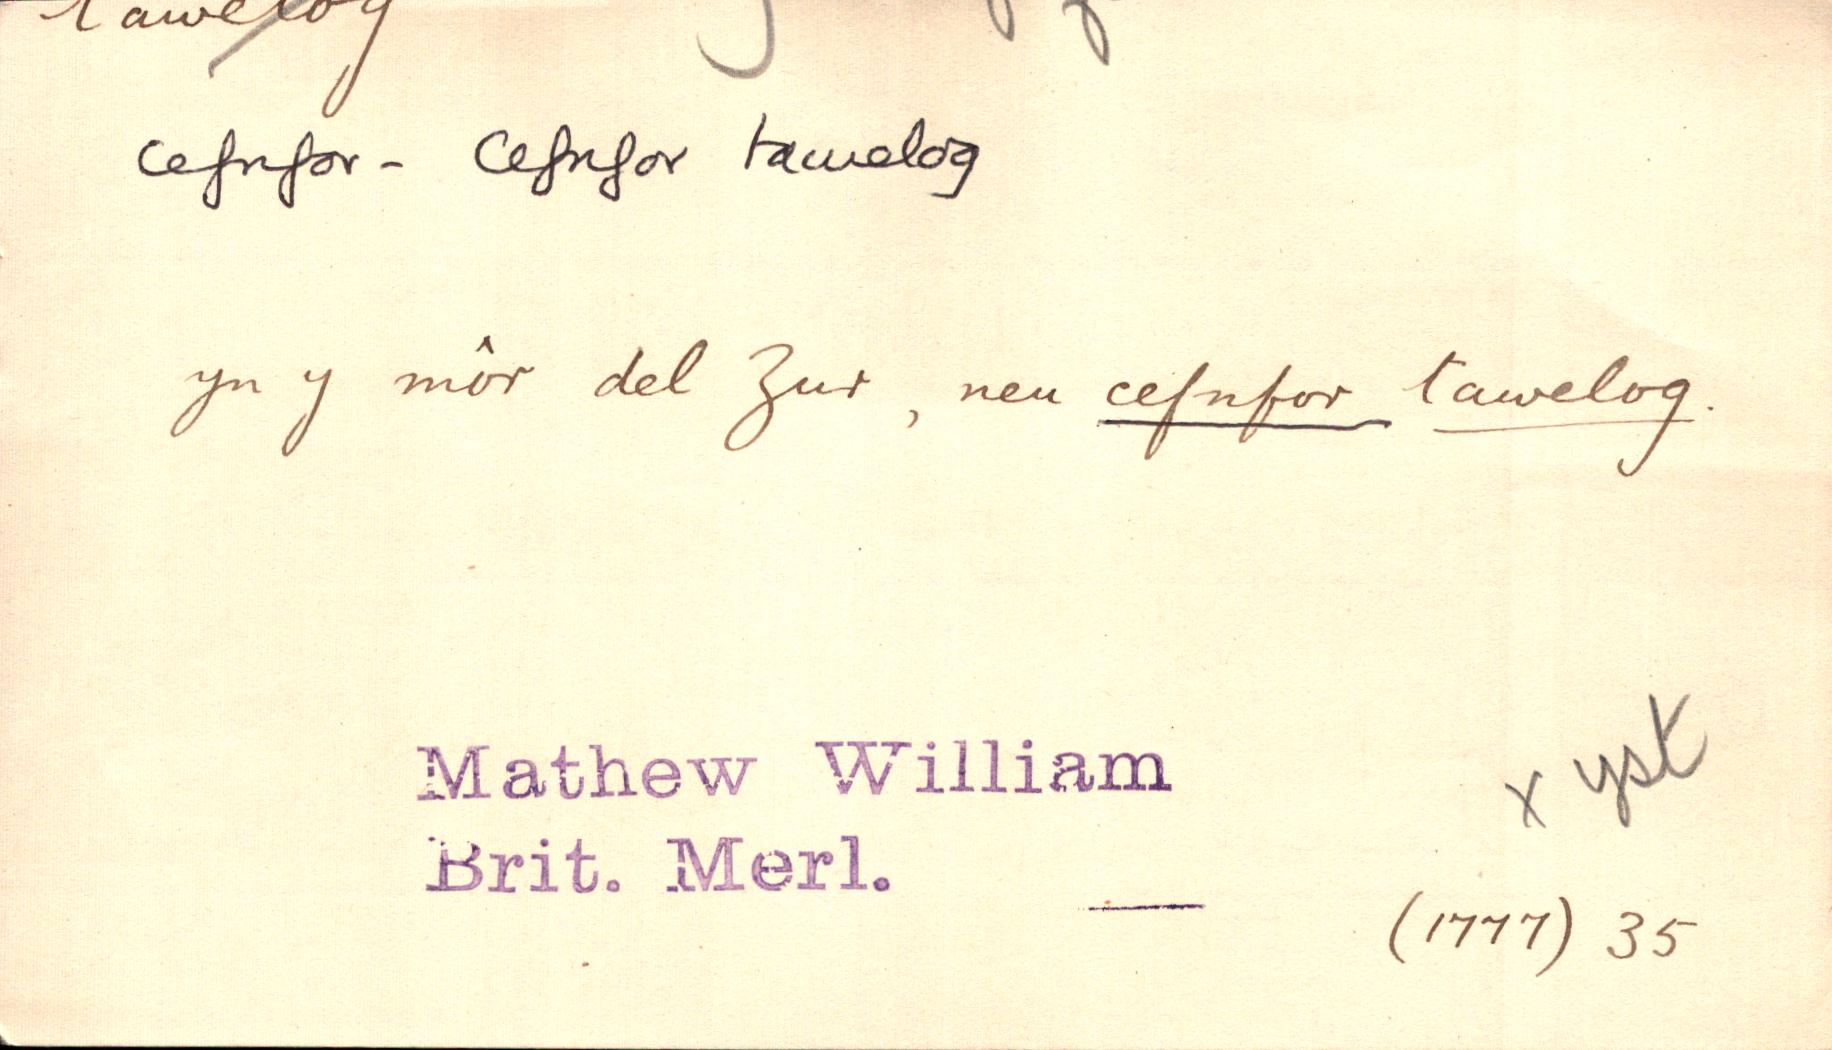 tawelog
cefnfor - Cefnfor tawelog
yn y môr del Zur, neu cefnfor tawelog.
Mathew William
x yst
Brit. Merl.
(1777) 35